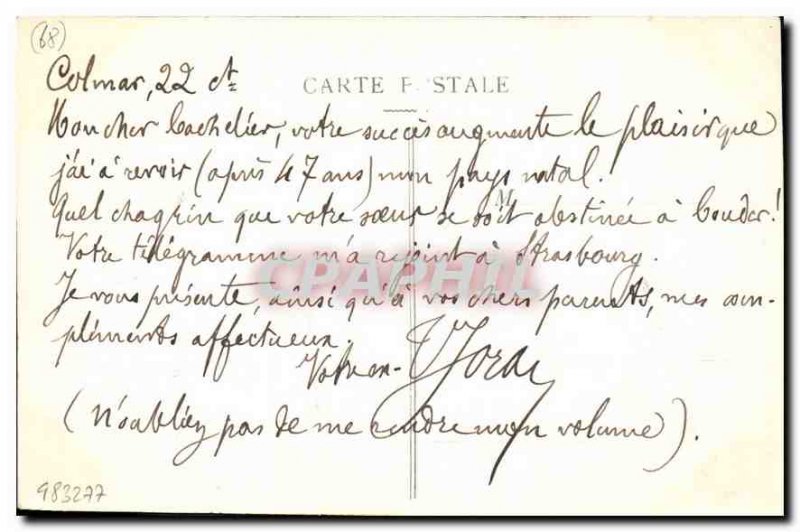 (68)
Colmar, 22 ct
CARTE POSTALE
Mon cher bachelier, votre succès augmente le plaisir que
j'ai à revoir (après 47 ans) mon pays natal.
Quel chagrin que votre sœur se soit obstinée à bouder!
Votre télégramme m'a rejoint à Strasbourg.
CPAPHIL
Je vous présente, ainsi qu'à vos chers parents, mes com-
pliments affectueux.
(N'oubliez pas de me rendre mon volume).
983277